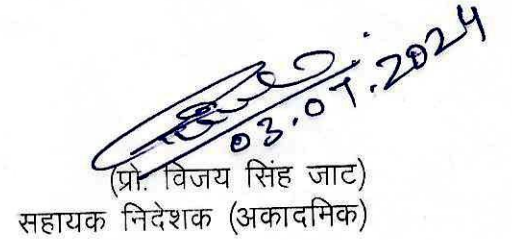 03.07.2024
(प्रो. विजय सिंह जाट)
सहायक निदेशक (अकादमिक)